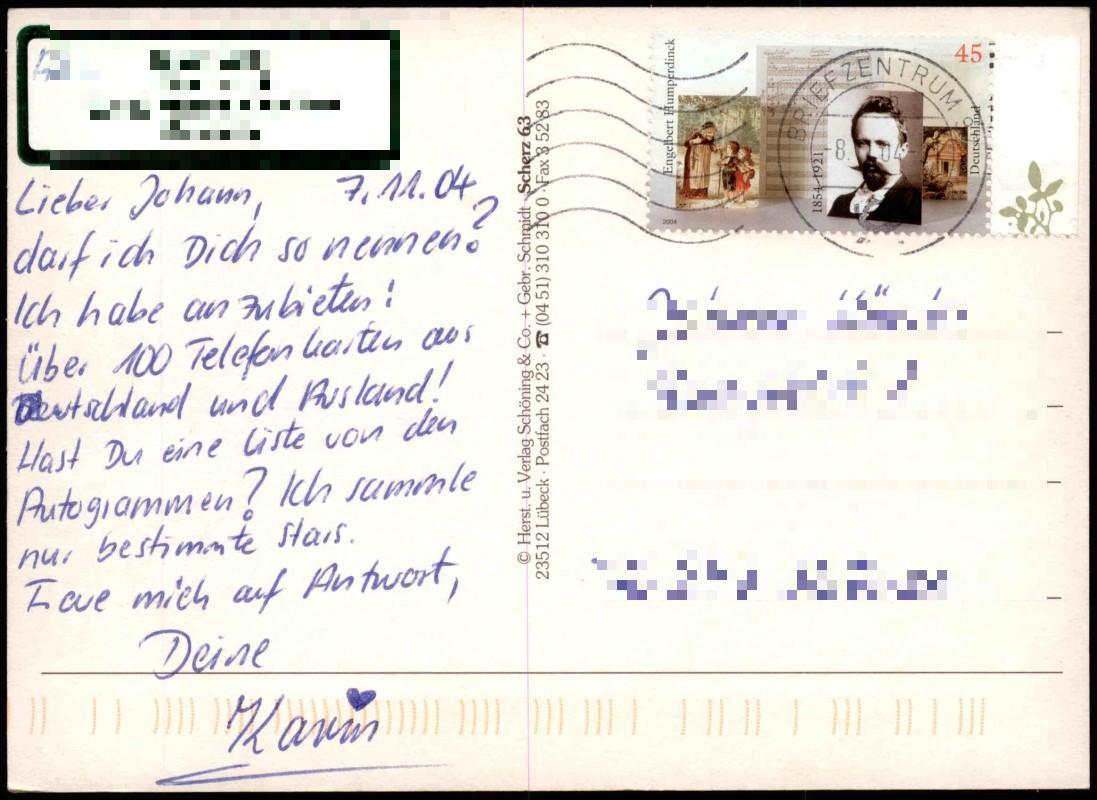 Lieber Johann, 7.11.04
darf ich Dich so nennen?
Ich habe anzubieten!
Über 100 Telefonkarten aus
Deutschland und Ausland!
Hast Du eine Liste von den
Autogrammen? Ich sammle
nur bestimmte Stars.
Freue mich auf Antwort,
Deine
Karin
© Herst. u. Verlag Schöning & Co. + Gebr. Schmidt · Scherz 63
23512 Lübeck · Postfach 24 23 · ☎ (04 51) 310 310 0 · Fax 3 52 83
Engelbert Humperdinck
1854–1921
45
Deutschland
2004
BRIEFZENTRUM
-8. 04-